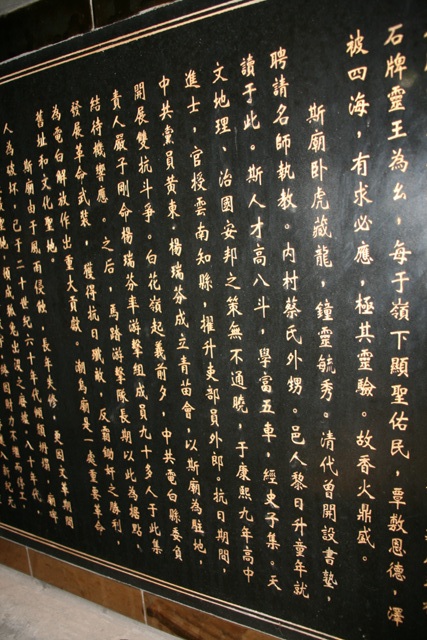 石牌靈王為幺，每于嶺下顯聖佑民，覃敷恩德，澤
被四海，有求必應，極其靈驗。故香火鼎盛。
斯廟卧虎藏龍，鐘靈毓秀。清代曾開設書塾，
聘請名師執教。内村蔡氏外甥。邑人黎日升童年就
讀于此。斯人才高八斗，學富五車，經史子集。天
文地理，治國安邦之策無不通曉，于康熙九年高中
進士，官授雲南知縣，擢升吏部員外郎。抗日期間，
中共黨員黄東·楊瑞芬成立青苗會，以斯廟為駐地，
開展雙抗斗爭。白花嶺起義前夕，中共電白縣委負
責人嚴子剛命楊瑞芬率游擊組成員九十多人于此集
結待機響應。之后，馬踏游擊隊長期以此為據點，
發展革命武裝，獲得抗日殲敵，反霸鋤奸之勝利，
為電白解放作出重大貢獻。潮烏廟是一處重要革命
舊址和文化聖地。
斯廟由于風雨侵蝕，長年失修，更因文革期間
人為破坏，已于二十世纪六十年代傾頹坍塌，廟